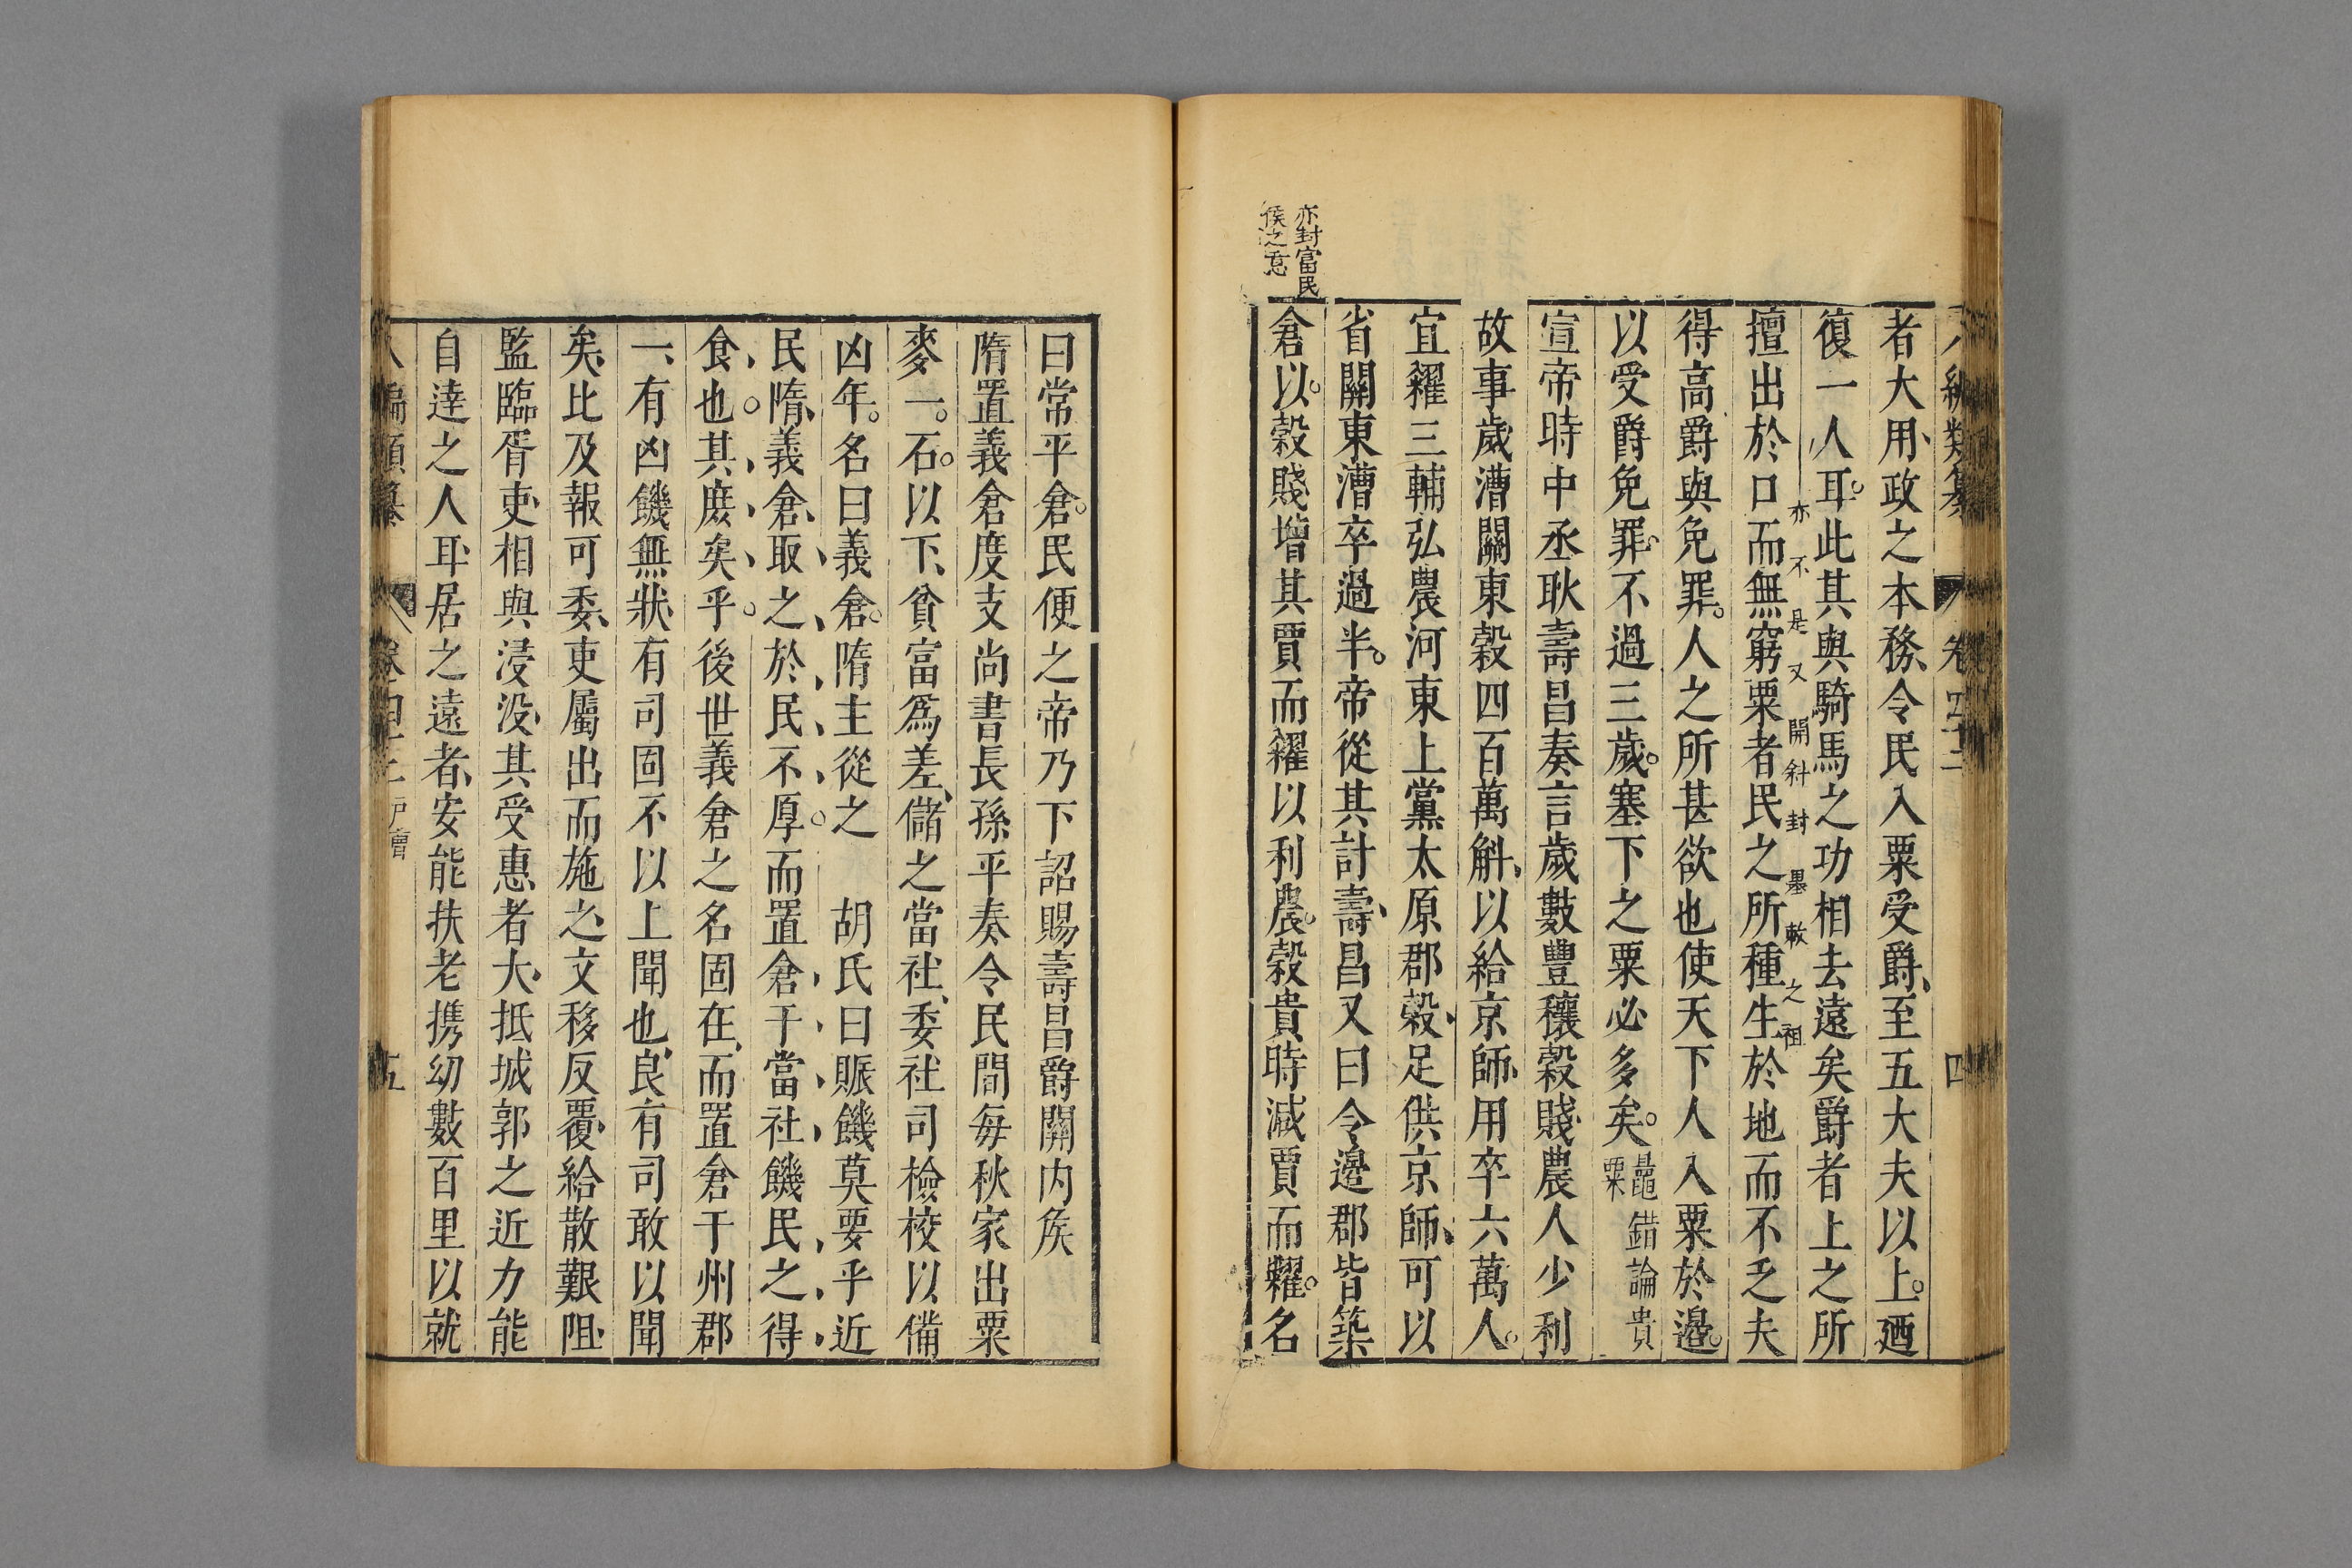 八編類纂 卷四十三 四
者大用政之本務令民入粟受爵至五大夫以上廼
復一人耳此其與騎馬之功相去遠矣爵者上之所
亦不是又開斜封墨敕之祖
擅出於口而無窮粟者民之所種生於地而不乏夫
得高爵與免罪人之所甚欲也使天下人入粟於邊
以受爵免罪不過三歲塞下之粟必多矣鼂錯論貴粟
宣帝時中丞耿壽昌奏言歲數豐穰穀賤農人少利
故事歲漕關東穀四百萬斛以給京師用卒六萬人
宜糴三輔弘農河東上黨太原郡穀足供京師可以
省關東漕卒過半帝從其計壽昌又曰令邊郡皆築
倉以穀賤增其賈而糴以利農穀貴時減賈而糶名
亦封富民
侯之意
曰常平倉民便之帝乃下詔賜壽昌爵關內侯
隋置義倉度支尚書長孫平奏令民間每秋家出粟
麥一石以下貧富爲差儲之當社委社司檢校以備
凶年名曰義倉隋主從之　胡氏曰賑饑莫要乎近
民隋義倉取之於民不厚而置倉于當社饑民之得
食也其庶矣乎後世義倉之名固在而置倉于州郡
一有凶饑無狀有司固不以上聞也良有司敢以聞
矣比及報可委吏屬出而施之文移反覆給散艱阻
監臨胥吏相與浸没其受惠者大抵城郭之近力能
自達之人耳居之遠者安能扶老携幼數百里以就
八編類纂 卷四十三 戶曹 五